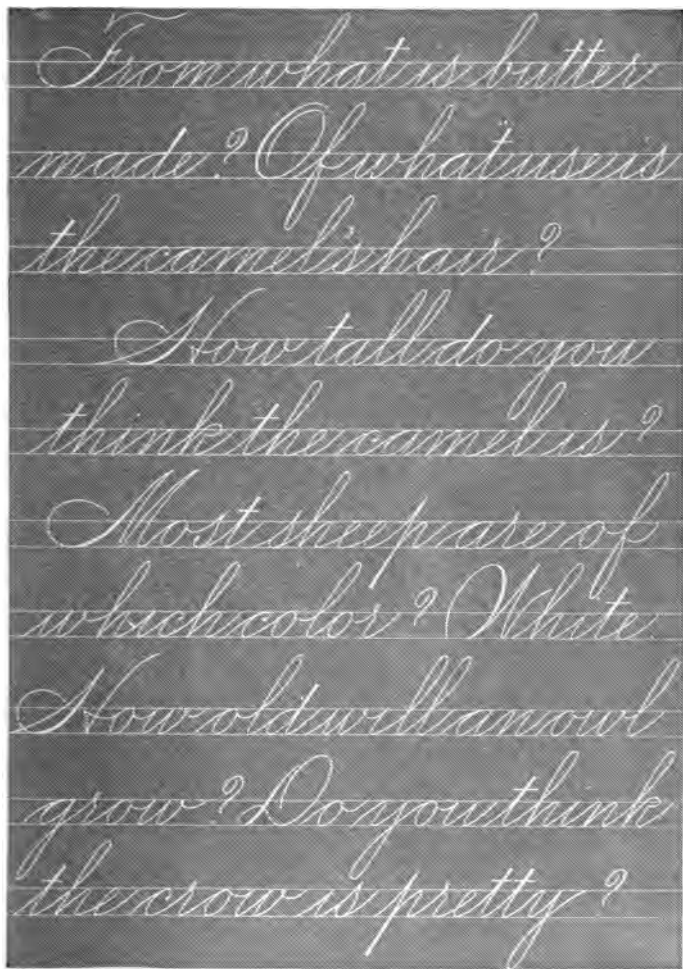 From what is butter
made? Of what use is
the camel's hair?
How tall do you
think the camel is?
Most sheep are of
which color? White.
How old will an owl
grow? Do you think
the crow is pretty?